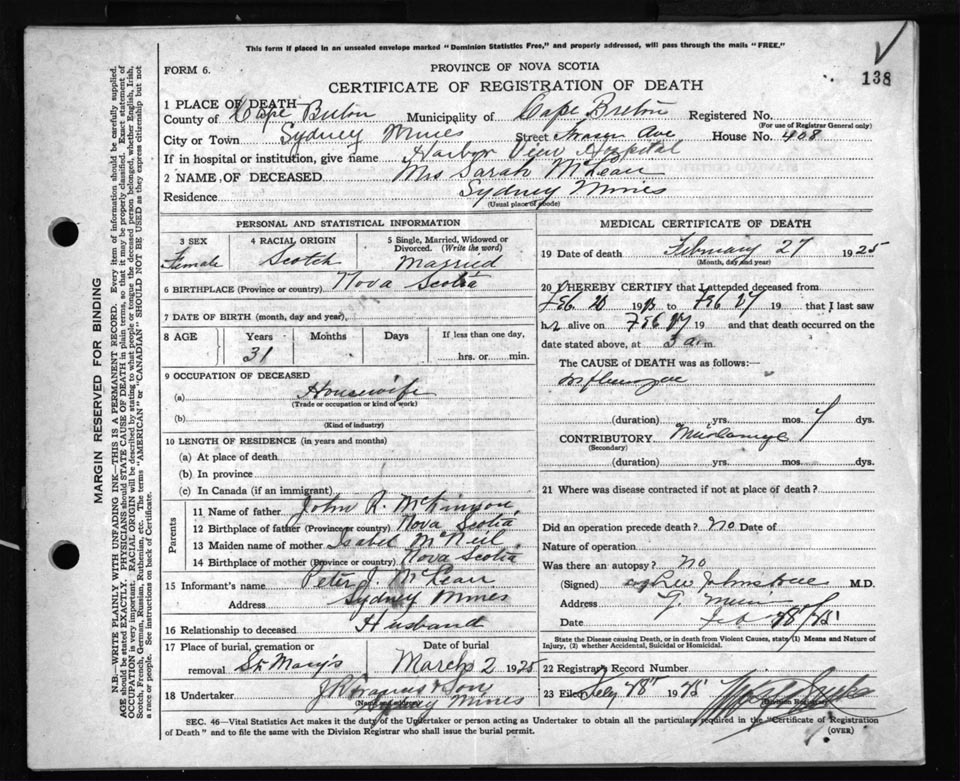 This form if placed in an unsealed envelope marked "Dominion Statistics Free," and properly addressed, will pass through the mails "FREE."
FORM 6.
PROVINCE OF NOVA SCOTIA
138
CERTIFICATE OF REGISTRATION OF DEATH
1 PLACE OF DEATH
County of Cape Breton Municipality of Cape Breton Registered No.
(For use of Registrar General only)
City or Town Sydney Mines Street Fraser Ave House No. 408
If in hospital or institution, give name Harbor View Hospital
2 NAME OF DECEASED Mrs Sarah McLean
Residence Sydney Mines
(Usual place of abode)
PERSONAL AND STATISTICAL INFORMATION
3 SEX 4 RACIAL ORIGIN 5 Single, Married, Widowed or Divorced. (Write the word)
Female Scotch Married
6 BIRTHPLACE (Province or country) Nova Scotia
7 DATE OF BIRTH (month, day and year)
8 AGE Years Months Days If less than one day,
31 hrs. or min.
9 OCCUPATION OF DECEASED
(a) Housewife
(Trade or occupation or kind of work)
(b)
(Kind of industry)
10 LENGTH OF RESIDENCE (in years and months)
(a) At place of death
(b) In province
(c) In Canada (if an immigrant)
Parents
11 Name of father John R. McKinnon
12 Birthplace of father (Province or country) Nova Scotia
13 Maiden name of mother Isabel McNeil
14 Birthplace of mother (Province or country) Nova Scotia
15 Informant's name Peter J. McLean
Address Sydney Mines
16 Relationship to deceased Husband
17 Place of burial, cremation or removal St Mary's
Date of burial
March 2 1925
18 Undertaker & Sons
(Name and address)
Sydney Mines
MEDICAL CERTIFICATE OF DEATH
19 Date of death February 27 1925
(Month, day and year)
20 I HEREBY CERTIFY that I attended deceased from
Feb 20 19 to Feb 27 19 that I last saw
her alive on Feb 27 19 and that death occurred on the
date stated above, at 3 a.m.
The CAUSE of DEATH was as follows:—
Influenza
(duration) yrs. mos. 7 dys.
CONTRIBUTORY
(Secondary)
(duration) yrs. mos. dys.
21 Where was disease contracted if not at place of death?
Did an operation precede death? No Date of
Nature of operation
Was there an autopsy? No
(Signed) M.D.
Address
Date
State the Disease causing Death, or in death from Violent Causes, state (1) Means and Nature of Injury, (2) whether Accidental, Suicidal or Homicidal.
22 Registrar's Record Number
23 Filed 19
(Division Registrar)
SEC. 46—Vital Statistics Act makes it the duty of the Undertaker or person acting as Undertaker to obtain all the particulars required in the "Certificate of Registration of Death" and to file the same with the Division Registrar who shall issue the burial permit.
(OVER)
MARGIN RESERVED FOR BINDING
N.B.—WRITE PLAINLY WITH UNFADING INK—THIS IS A PERMANENT RECORD. Every item of information should be carefully supplied.
AGE should be stated EXACTLY. PHYSICIANS should STATE CAUSE OF DEATH in plain terms, so that it may be properly classified. Exact statement of
OCCUPATION is very important. RACIAL ORIGIN will be described by stating to what people or tongue the deceased person belonged, whether English, Irish,
Scotch, French, German, Russian, Ruthenian, etc. The terms "AMERICAN" or "CANADIAN" SHOULD NOT BE USED as they express citizenship but not
a race or people. See instructions on back of Certificate.